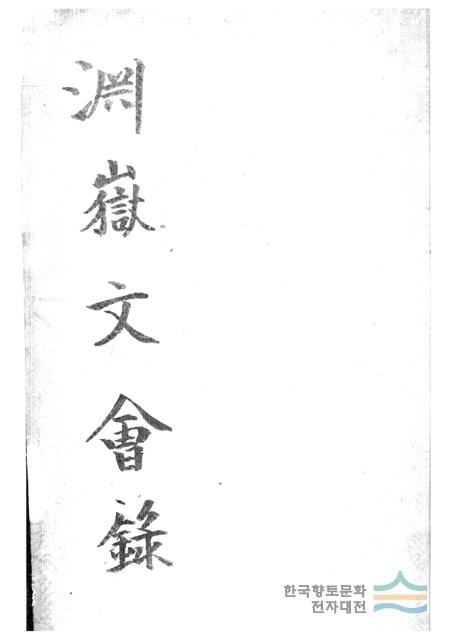 淵嶽文會錄
한국향토문화
전자대전